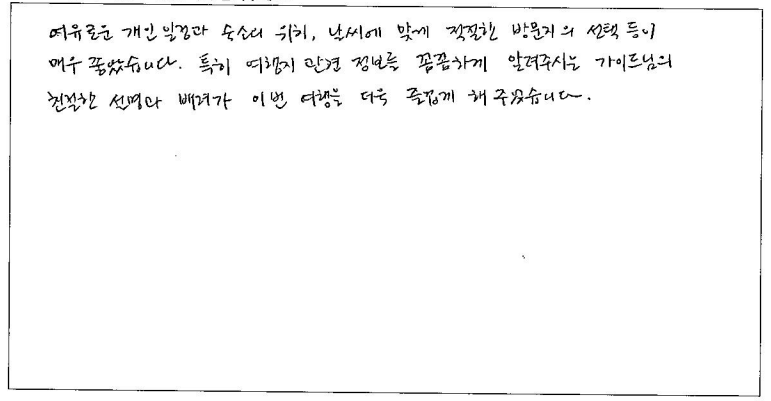 여유로운 개인일정과 숙소의 위치, 날씨에 맞게 적절한 방문지의 선택 등이
매우 좋았습니다. 특히 여행지 관련 정보를 꼼꼼하게 알려주시는 가이드님의
친절한 설명과 배려가 이번 여행을 더욱 즐겁게 해 주었습니다.